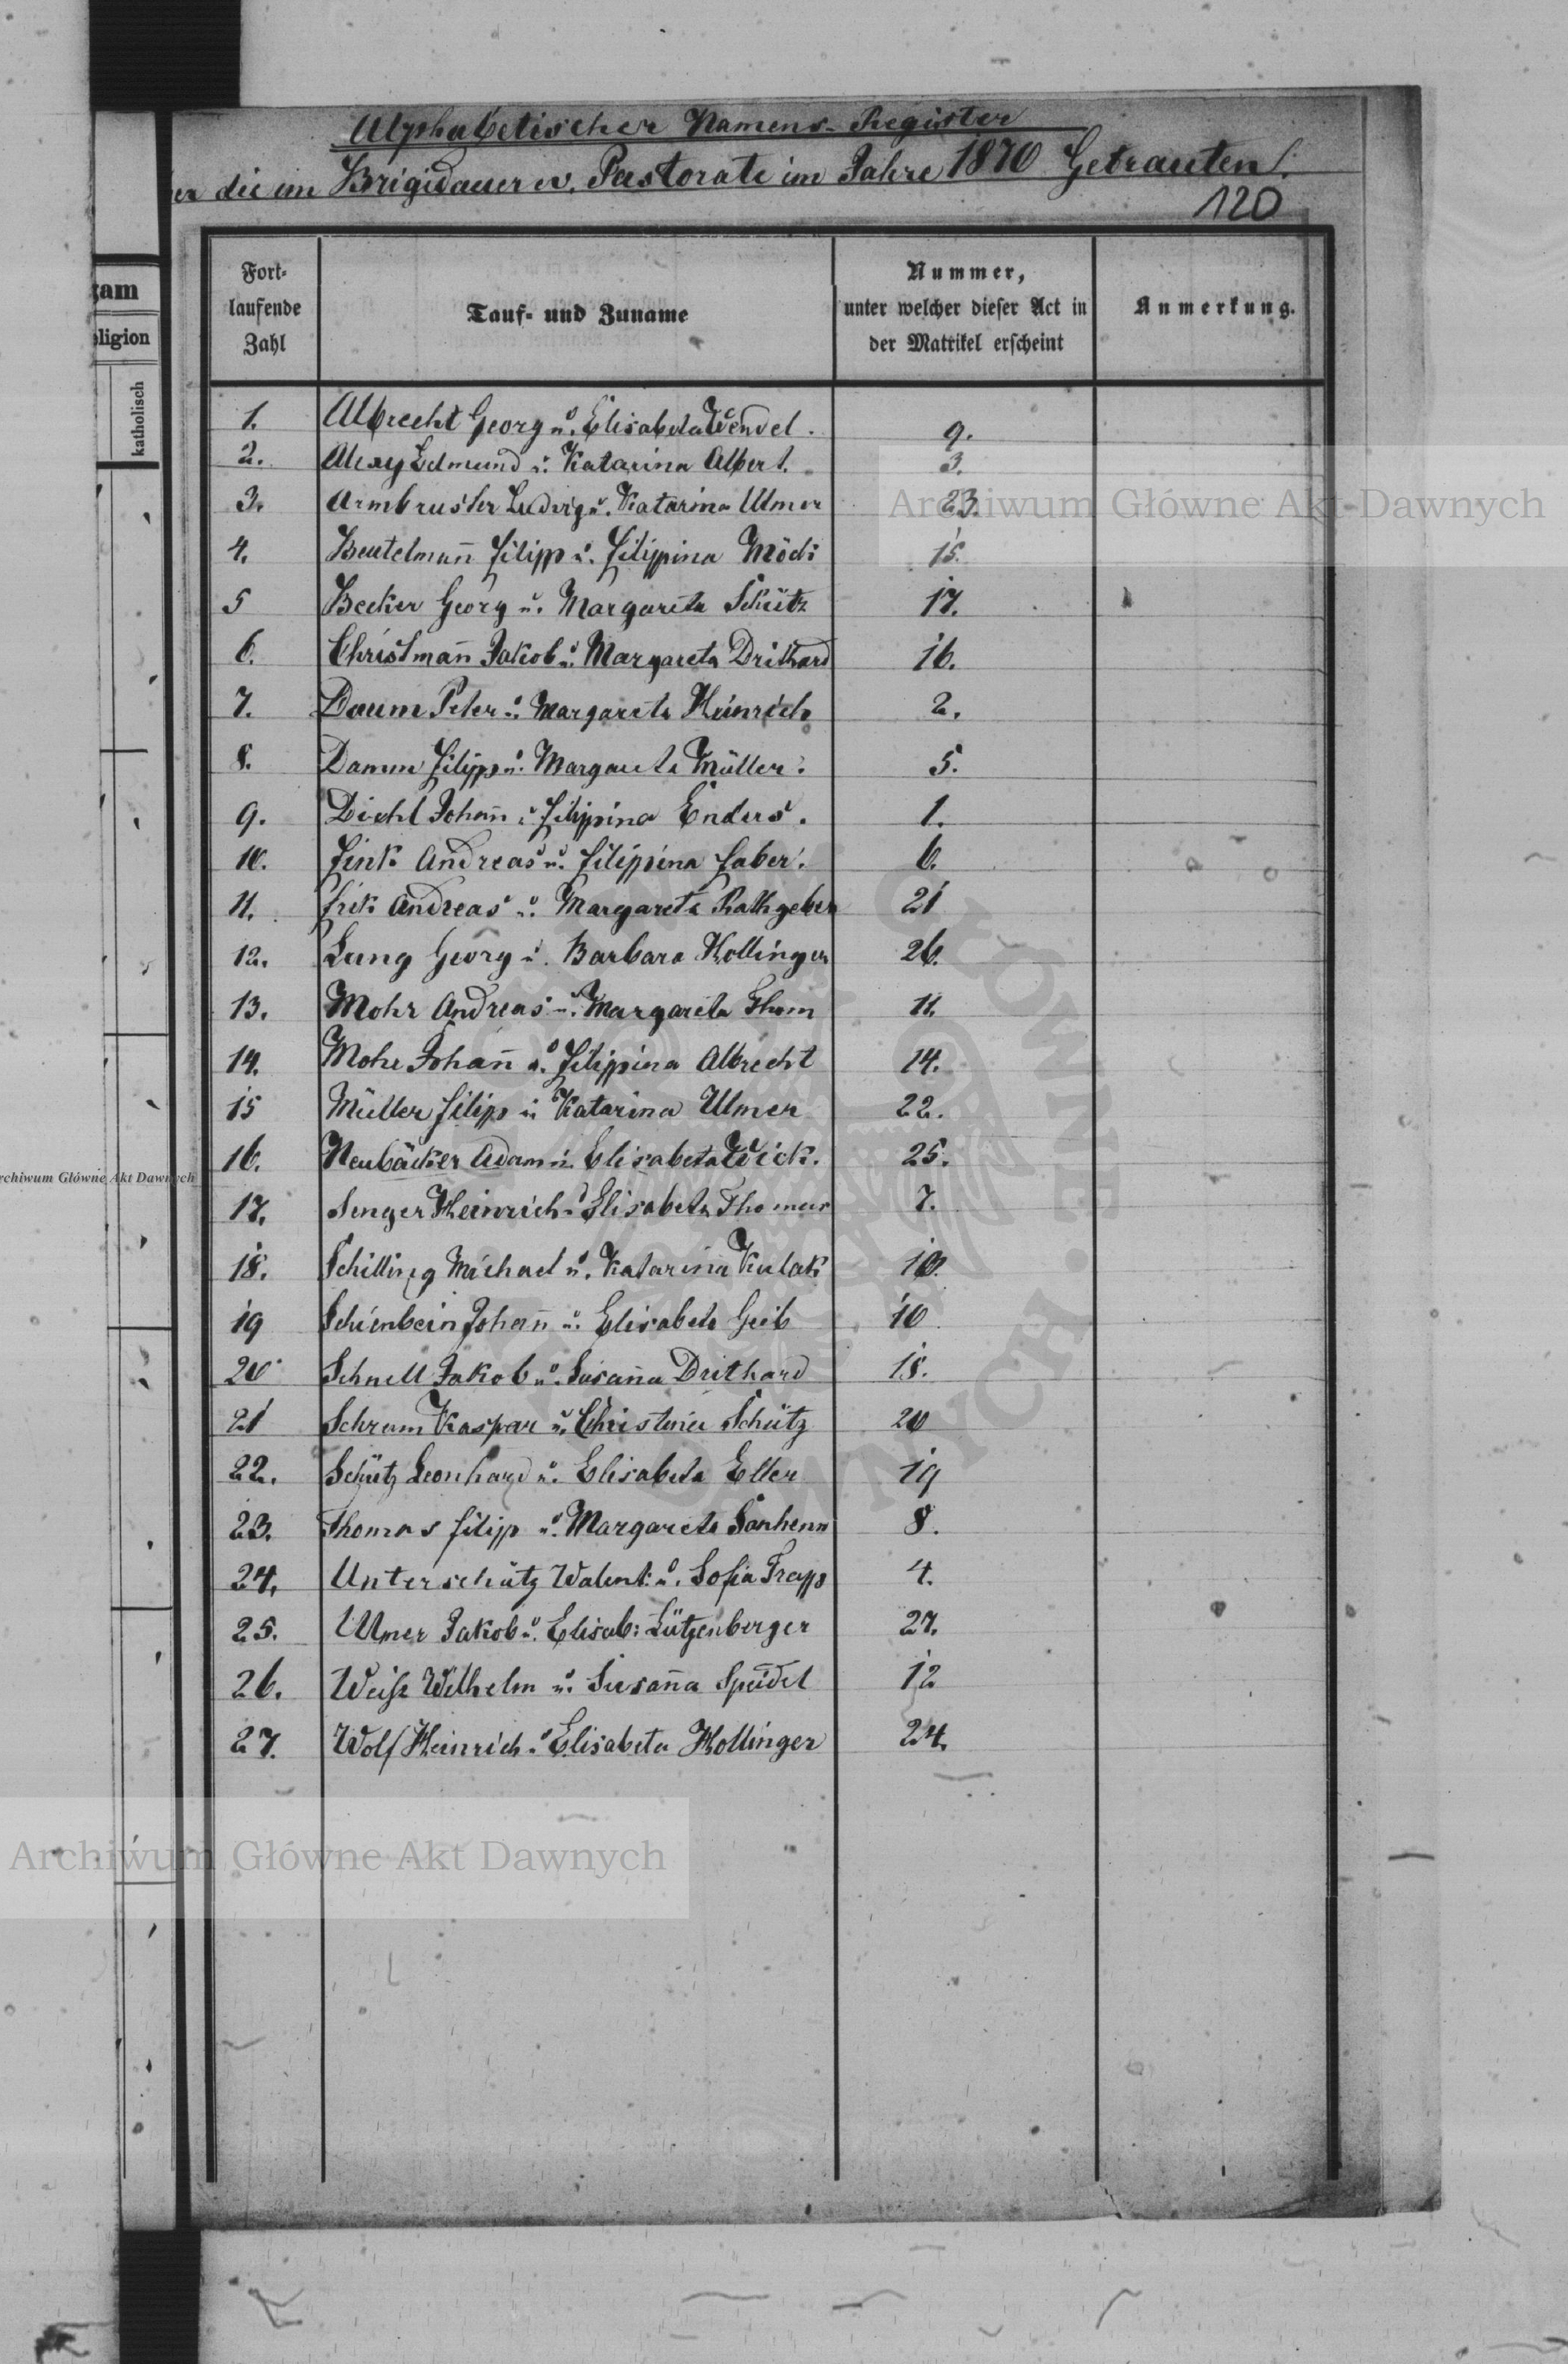 Alphabetischer Namens-Register
er die im Brigidauer ev. Pastorate im Jahre 1870 Getrauten.
120
Fort-
laufende
Zahl
Tauf- und Zuname
Nummer,
unter welcher dieser Act in
der Matrikel erscheint
Anmerkung.
gam
eligion
katholisch
1. Albrecht Georg u. Elisabeta Wendel. 9.
2. Alexy Edmund u. Katarina Albert. 3.
3. Armbruster Ludwig u. Katarina Ulmer 23.
4. Beutelmañ Filipp u. Filippina Möck 15.
5 Becker Georg u. Margareta Schütz 17.
6. Christmañ Jakob u. Margareta Drithard 16.
7. Daum Peter u. Margareta Heinrich 2.
8. Damm Filipp u. Margareta Müller. 5.
9. Diehl Johañ u. Filippina Enders. 1.
10. Fink Andreas u. Filippina Faber. 6.
11. Frik Andreas u. Margareta Rathgeber 21
12. Lung Georg u. Barbara Hollinger 26.
13. Mohr Andreas u. Margareta Thom 11.
14. Mohr Johañ u. Filippina Albrecht 14.
15 Müller Filipp u. Katarina Ulmer 22.
16. Neubäcker Adam u. Elisabeta Wick. 25.
17. Senger Heinrich u. Elisabeta Thomas 7.
18. Schilling Michael u. Katarina Kulak
19 Schienbein Johañ u. Elisabeta Geib 10
20 Schnell Jakob u. Susaña Drithard 18.
21 Schram Kaspar u. Christina Schütz 20
22. Schütz Leonhard u. Elisabeta Eller 19
23. Thomas Filipp u. Margareta Sanhenn 8.
24. Unterschütz Walent: u. Sofia Trapp 4.
25. Ulmer Jakob u. Elisab: Lützenberger 27.
26. Weiß Wilhelm u. Susaña Speidel 12
27. Wolf Heinrich u. Elisabeta Hollinger 24.
Archiwum Główne Akt Dawnych
Archiwum Główne Akt Dawnych
rchiwum Główne Akt Dawnych